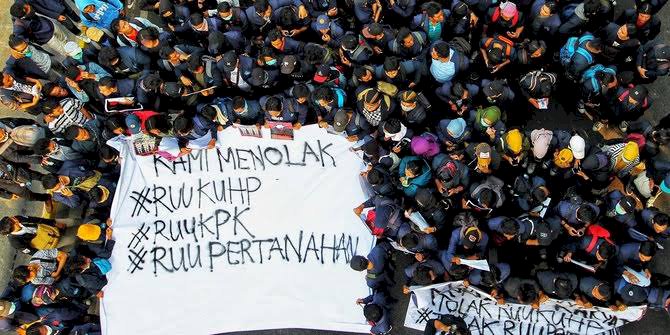 KAMI MENOLAK
#RUU KUHP
#RUU KPK
#RUU PERTANAHAN
TOLAK RUU KUHP